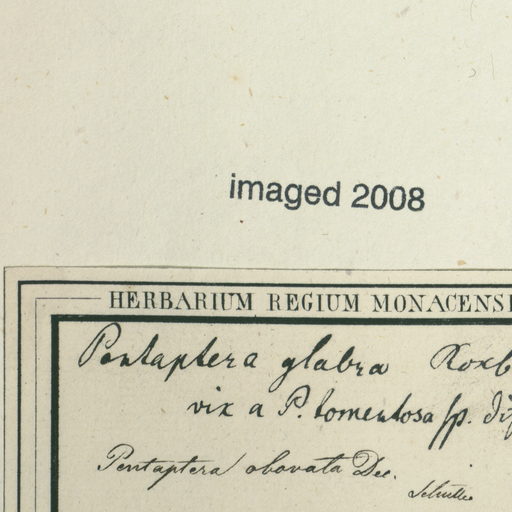 imaged 2008
HERBARIUM REGIUM MONACENS
Pentaptera glabra Roxb
vix a P. tomentosa sp. dif
Pentaptera obovata Dec.